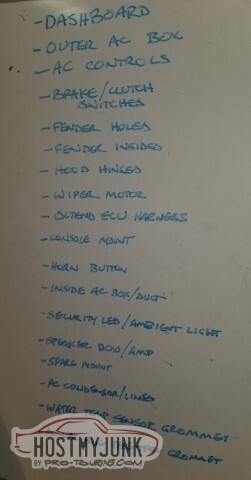 -DASHBOARD
-OUTER AC BOX
-AC CONTROLS
-BRAKE/CLUTCH
SWITCHES
-FENDER HOLES
-FENDER INSIDES
-HOOD HINGES
-WIPER MOTOR
-EXTEND ECU HARNESS
-CONSOLE MOUNT
-HORN BUTTON
-INSIDE AC BOX/DUCT
-SECURITY LED/AMBIENT LIGHT
-SPEAKER BOD/AMP
-SPARE MOUNT
-AC CONDENSOR/LINES
-WATER TEMP SENSOR GROMMET
GROMMET
HOSTMYJUNK
BY PRO-TOURING.COM